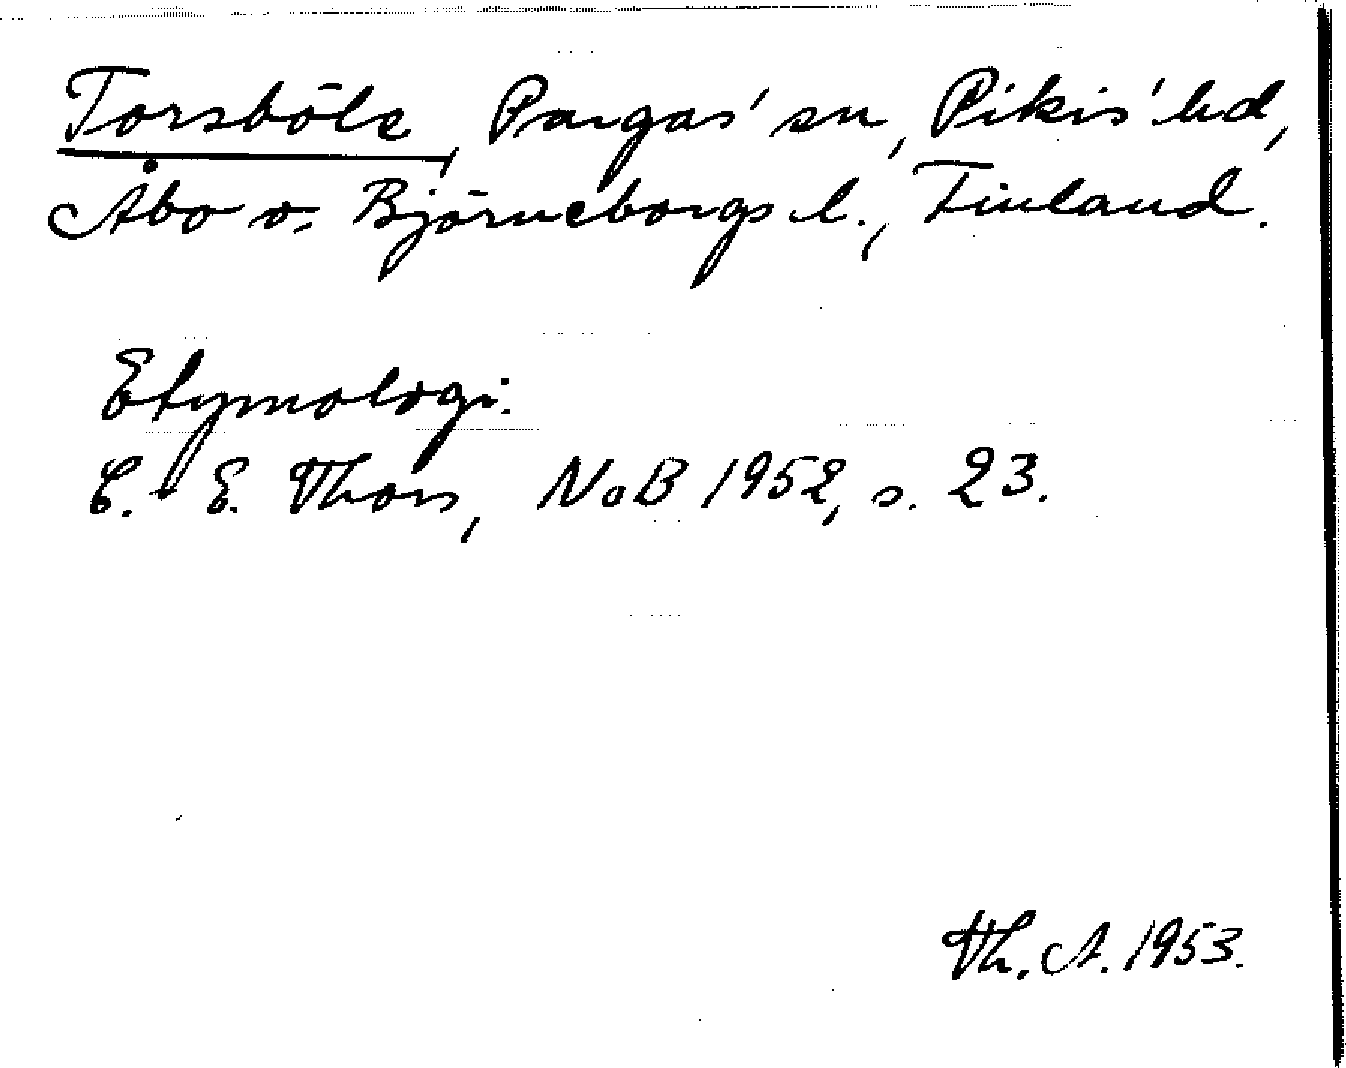 Torsböle, Pargas' sn, Pikis' hd,
Åbo o. Björneborgs l., Finland.
Etymologi.
C. E. Thors, NoB 1952, s. 23.
Th. A. 1953.